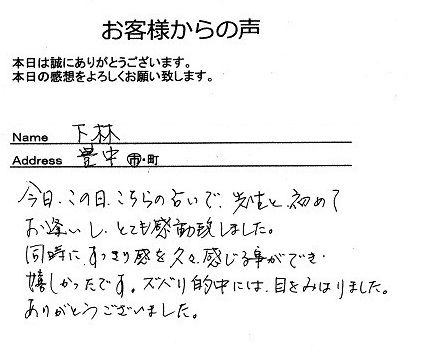 お客様からの声
本日は誠にありがとうございます。
本日の感想をよろしくお願い致します。
Name 下林
Address 豊中 市・町
今日、この日、こちらの占いで、先生と、初めて
お逢いし、とても感動致しました。
同時に、すっきり感を久々、感じる事ができ、
嬉しかったです。ズバリ的中には、目をみはりました。
ありがとうございました。